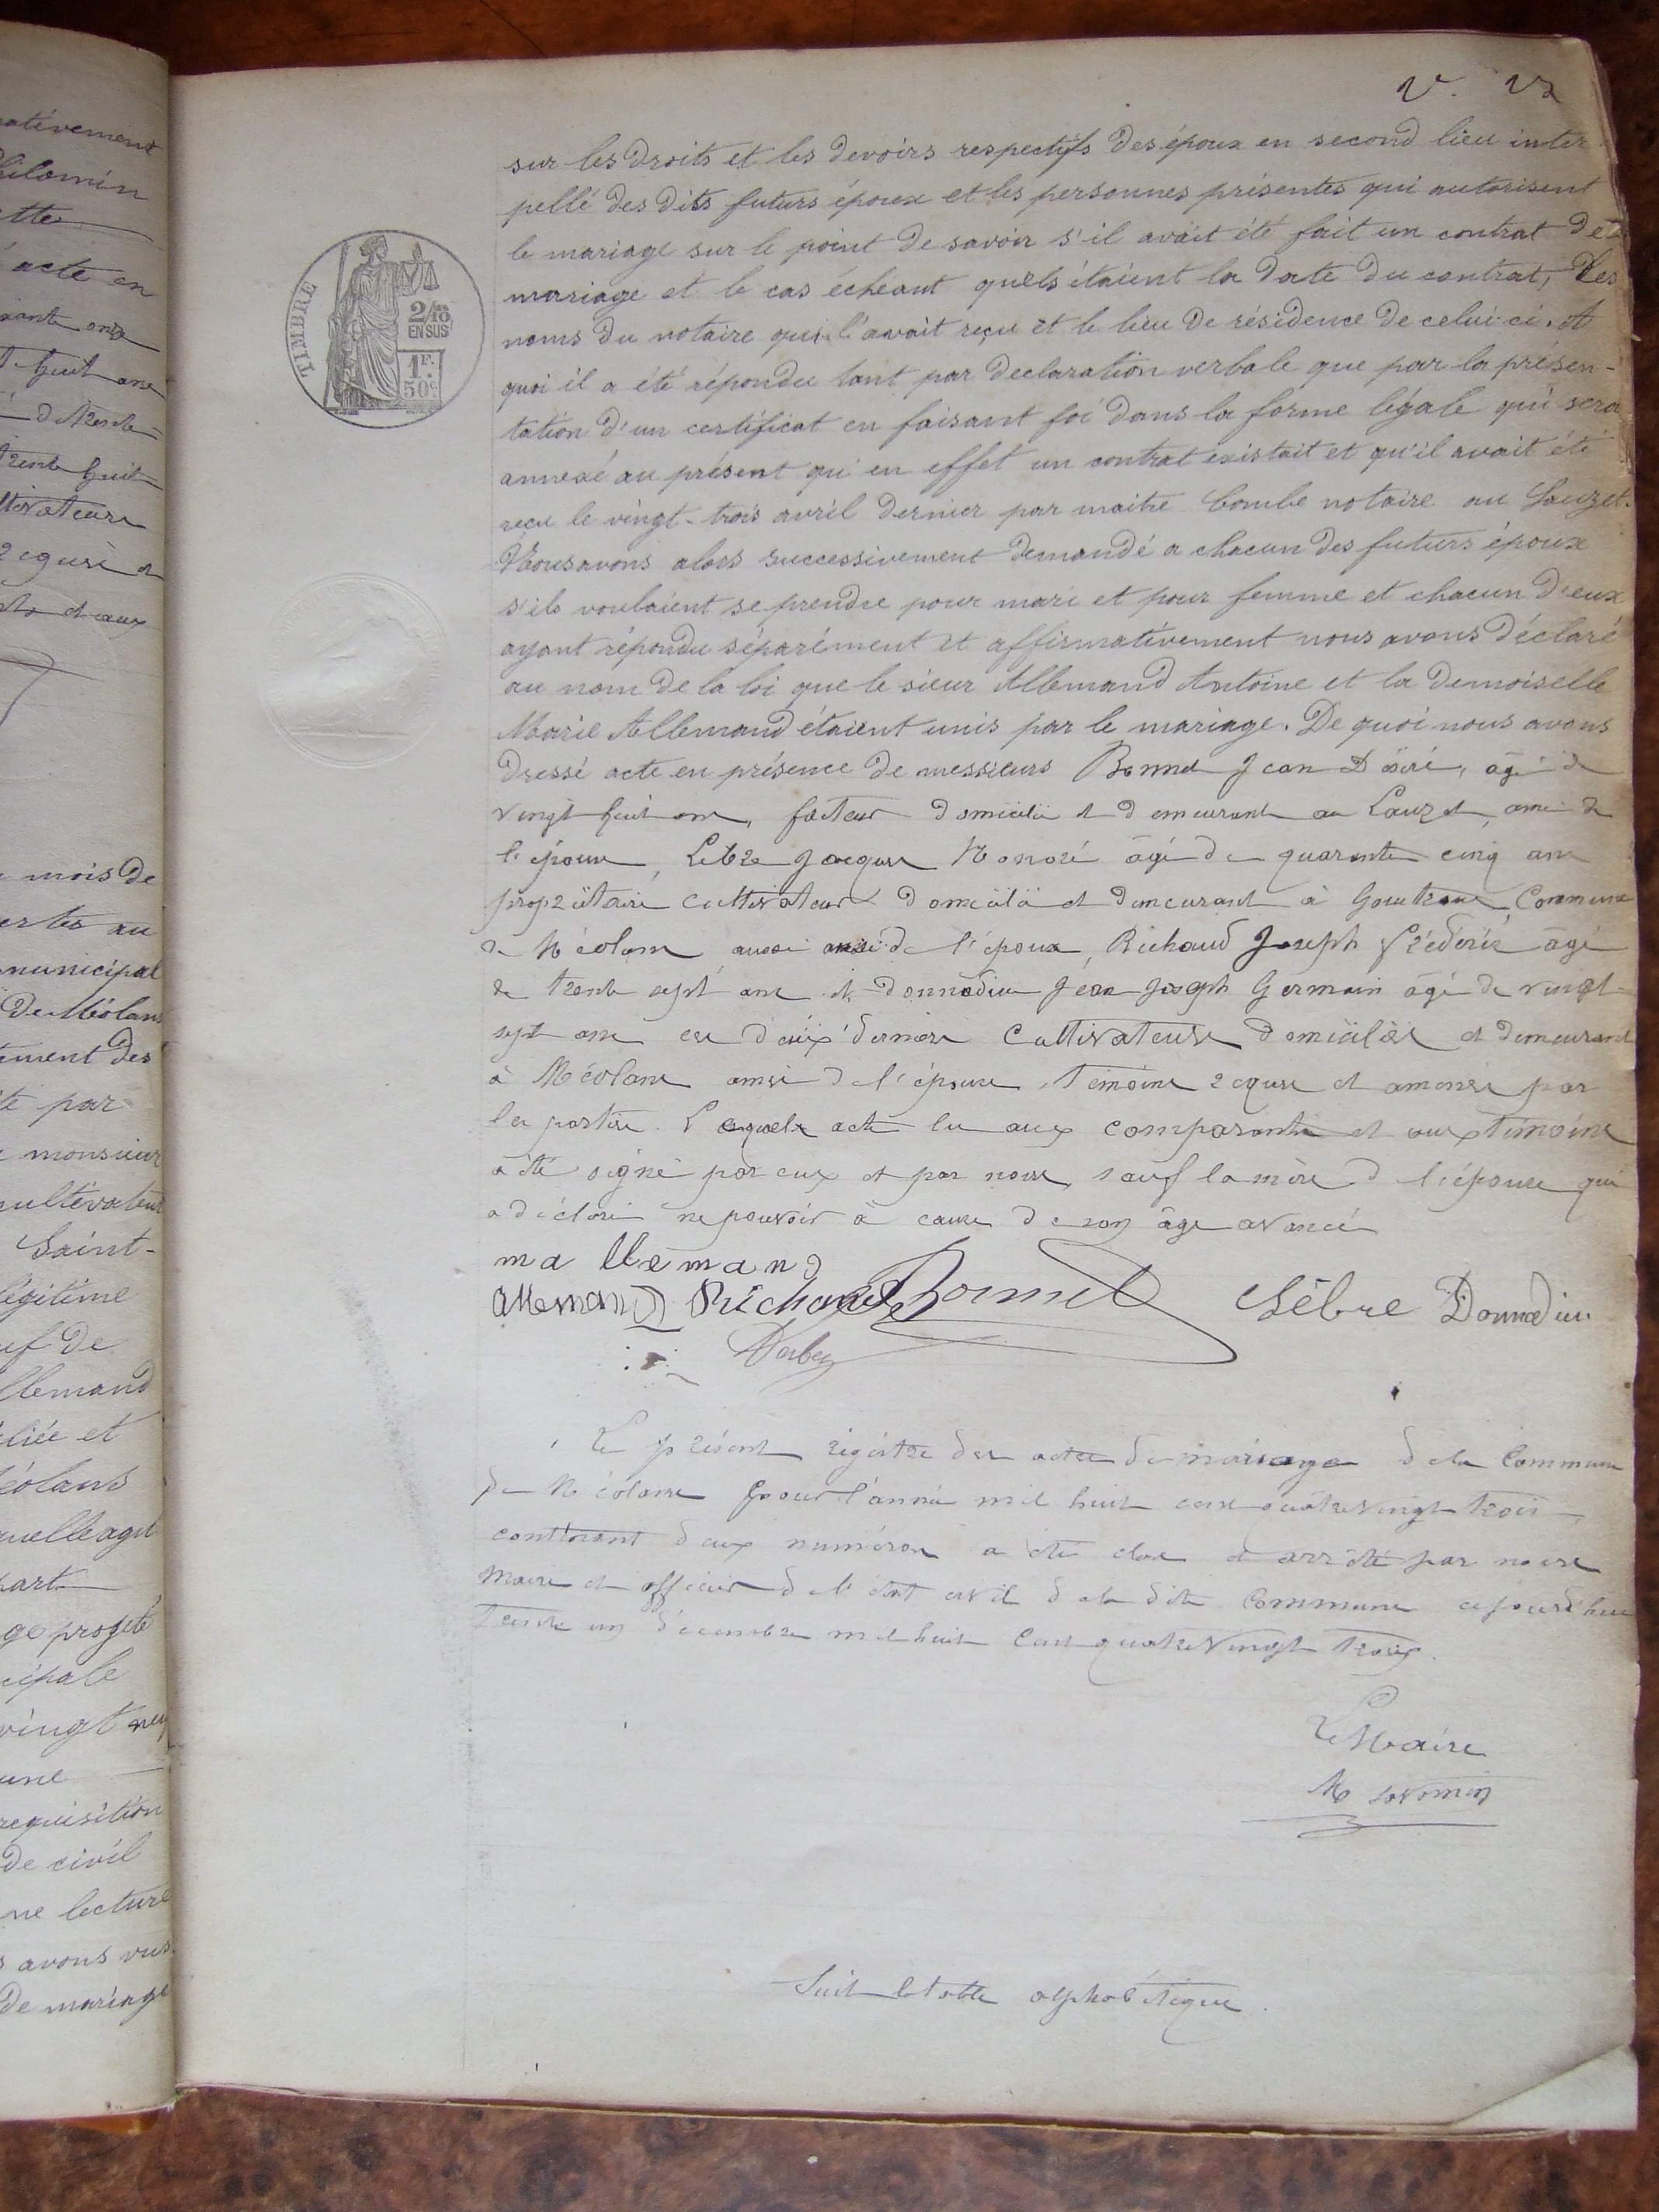 ativement
hilomin
ette
acte en
Huit ans
trente huit
ltivateurs
requis et
et aux
mois de
ertes au
municipal
De Méolans
tement des
te par
monsieur
cultivateur
Saint-
légitime
uf de
llemand
iliée et
éolans
uelle agit
part
ge projeté
cipale
vingt neuf
une
requisition
de civil
ne lecture
s avons vus
de mariage
TIMBRE
2/10
EN SUS
1F.
50c
sur les droits et les devoirs respectifs des époux en second lieu inter-
pellé des dits futurs époux et les personnes présentes qui autorisent
le mariage sur le point de savoir s'il avait été fait un contrat de
mariage et le cas échéant quels étaient la date du contrat, les
noms du notaire qui l'avait reçu et le lieu de résidence de celui-ci. A
quoi il a été répondu tant par declaration verbale que par la présen-
tation d'un certificat en faisant foi dans la forme légale qui sera
annexé au présent qu'en effet un contrat existait et qu'il avait été
reçu le vingt-trois avril dernier par maitre Combe notaire au Lauzet.
Nous avons alors successivement demandé a chacun des futurs époux
s'ils voulaient se prendre pour mari et pour femme et chacun d'eux
ayant répondu séparément et affirmativement nous avons déclaré
au nom de la loi que le sieur Allemand Antoine et la demoiselle
Marie Allemand étaient unis par le mariage. De quoi nous avons
dressé acte en présence de messieurs Bonnet Jean Désiré, âgé de
vingt huit ans, facteur domicilié et demeurant au Lauzet, ami de
l'époux, Lèbre Jacques Honoré âgé de quarante cinq ans
propriétaire cultivateur domicilié et demeurant à Commune
de Méolans aussi ami de l'époux, Richaud Joseph Fréderic âgé
de trente sept ans et donnadieu Jean Joseph Germain âgé de vingt-
sept ans ces deux derniers Cultivateurs domiciliés et demeurant
à Méolans amis de l'épouse, témoins requis et amenés par
les parties. Lequel acte lu aux comparants et aux témoins
a été signé par eux et par nous, sauf la mère de l'épouse qui
a déclaré ne pouvoir à cause de son âge avancé
ma llemand
allemand Richaud Bonnet Lèbre Donnadieu
Le présent régistre des actes de mariage de la Commune
de Méolans pour l'année mil huit cent quatre vingt trois
contenant deux numéros a été clos et arrêté par nous
Maire et officier de l'état civil de la dite Commune cejourd'hui
trente un décembre mil huit Cent quatre vingt trois.
Le Maire
Suit la table alphabétique.